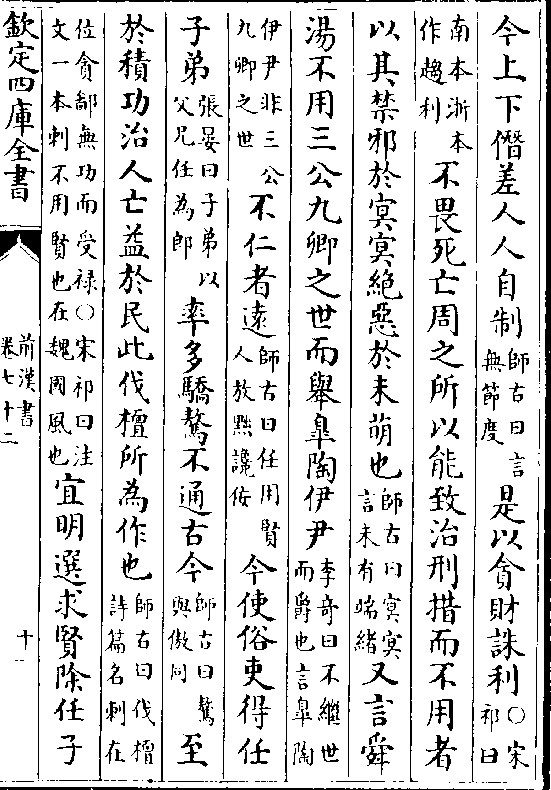 今上下僭差人人自制師古曰言無節度是以貪財誅利○宋祁曰
南本浙本作趨利不畏死亡周之所以能致治刑措而不用者
以其禁邪於冥冥絶惡於未萌也師古曰冥冥言未有端緒又言舜
湯不用三公九卿之世而舉臯陶伊尹李奇曰不繼世而爵也言臯陶
伊尹非三公九卿之世不仁者遠師古曰任用賢人放黜讒佞今使俗吏得任
子弟張晏曰子弟以父兄任為郎率多驕驁不通古今師古曰驁與傲同至
於積功治人亡益於民此伐檀所為作也師古曰伐檀詩篇名刺在
位貪鄙無功而受禄○宋祁曰注文一本刺不用賢也在魏國風也宜明選求賢除任子
欽定四庫全書
前漢書
卷七十二
十